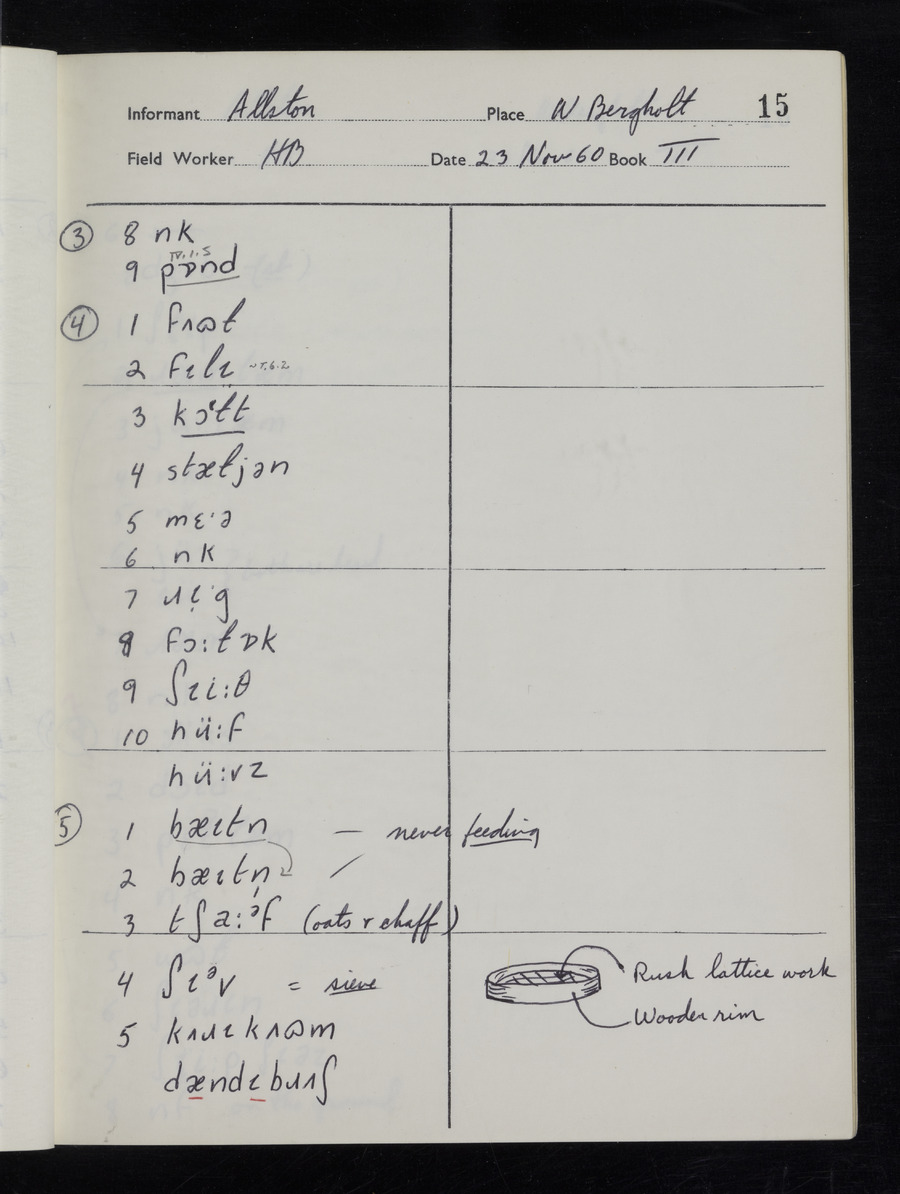 Informant Allston Place W Bergholt 15
Field Worker HB Date 23 Nov 60 Book III
③ 8 nk
IV.1.5
9 pɒnd
④ 1 fʌɷt
2 fɪlɪ
3 kɔˑɫt
4 stætjən
5 mɛˑə
6 nk
7 ɹɪ̣ˑg
8 fɔ:tɒk
9 ʃɪi:θ
10 hü:f
hü:vz
⑤ 1 bæɪtn̩ — never feeding
2 bæɪtn̩
3 tʃa:ᵊf (oats & chaff)
4 ʃɪᵊv = sieve
Rush lattice work
Wooden rim
5 kʌɹɪ kʌɷm
dændɪbɹʌʃ